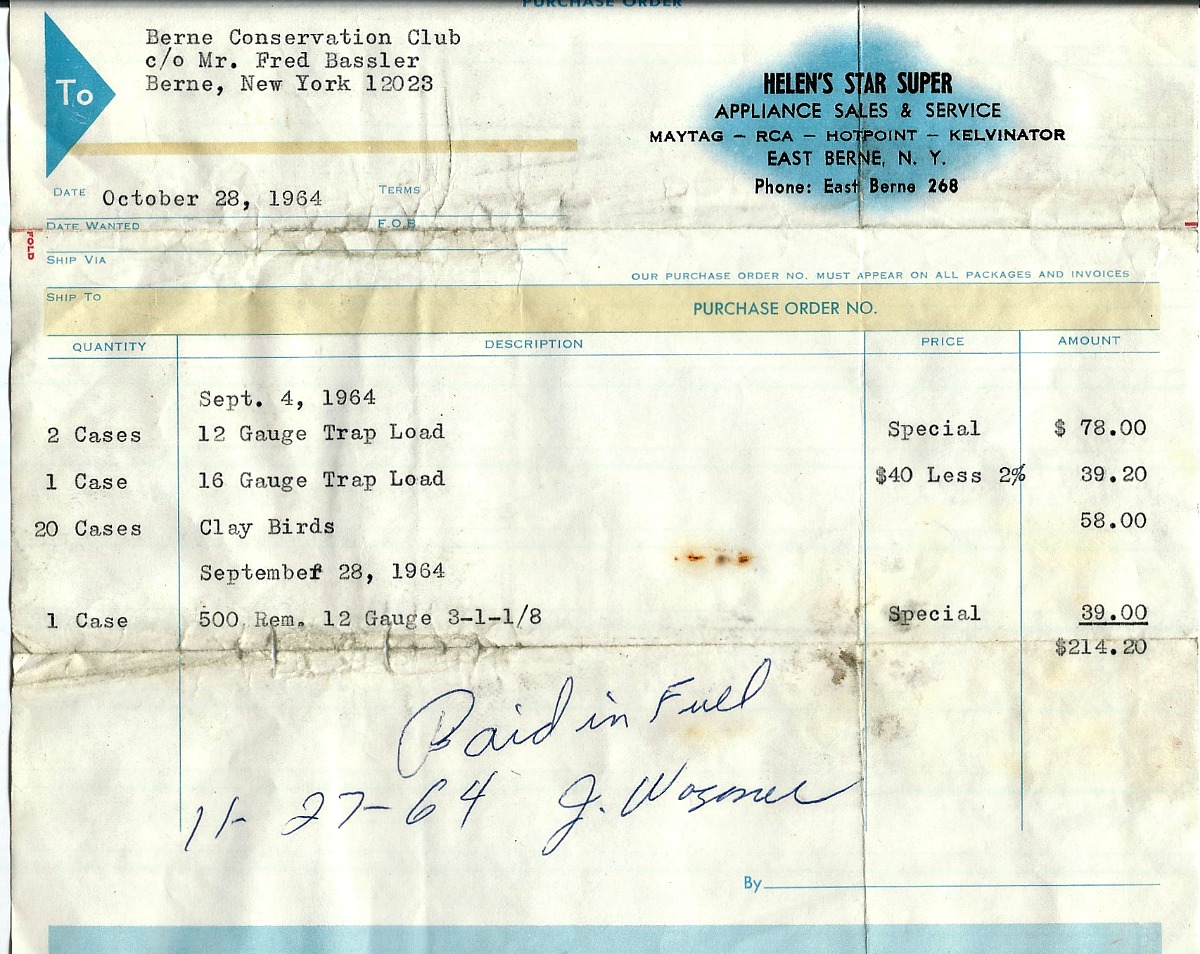 PURCHASE ORDER
To
Berne Conservation Club
c/o Mr. Fred Bassler
Berne, New York 12023
HELEN'S STAR SUPER
APPLIANCE SALES & SERVICE
MAYTAG – RCA – HOTPOINT – KELVINATOR
EAST BERNE, N. Y.
Phone: East Berne 268
DATE October 28, 1964 TERMS
DATE WANTED F.O.B.
FOLD
SHIP VIA
OUR PURCHASE ORDER NO. MUST APPEAR ON ALL PACKAGES AND INVOICES
SHIP TO
PURCHASE ORDER NO.
QUANTITY DESCRIPTION PRICE AMOUNT
Sept. 4, 1964
2 Cases 12 Gauge Trap Load Special $ 78.00
1 Case 16 Gauge Trap Load $40 Less 2% 39.20
20 Cases Clay Birds 58.00
September 28, 1964
1 Case 500 Rem. 12 Gauge 3-1-1/8 Special 39.00
$214.20
Paid in Full
11-27-64 J.
By